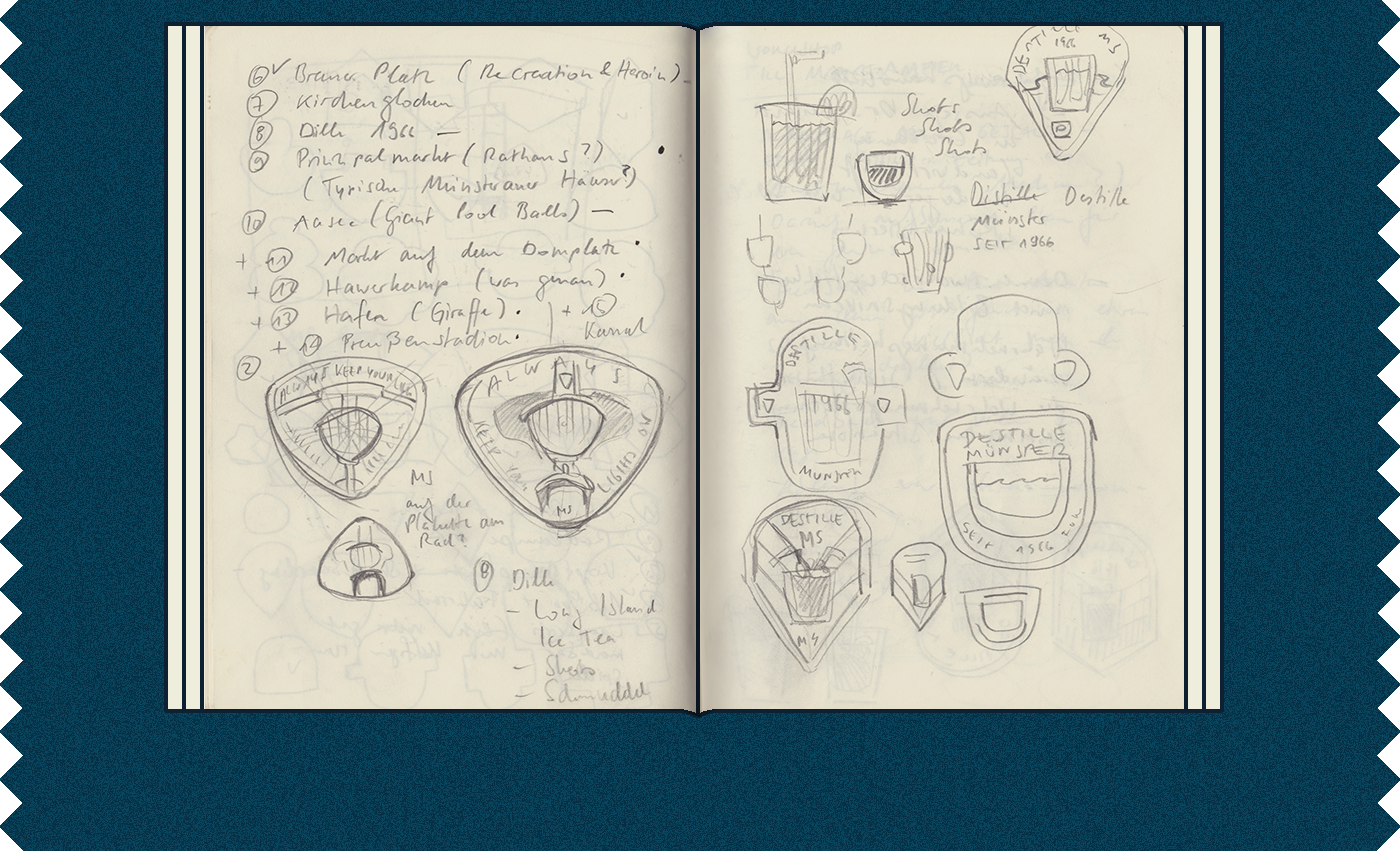 6 ✓ Bremer Platz (Recreation & Heroin) –
7 Kirchenglocken
8 Dille 1966 —
9 Prinzipalmarkt (Rathaus?)
(Typische Münsteraner Häuser?)
10 Aasee (Giant Pool Balls) —
+ 11 Markt auf dem Domplatz •
+ 12 Hawerkamp (was genau) •
+ 13 Hafen (Giraffe) •
+ 15
Kanal
+ 14 Preußenstadion •
2
ALWAYS KEEP YOUR
ALWAYS
KEEP YOUR
LIGHTS ON
MS
MS
auf der
Plakette am
Rad?
8 Dille
– Long Island
Ice Tea
– Shots
DESTILLE MS
1966
Shots
Shots
Shots
Distille Destille
Münster
SEIT 1966
DESTILLE
1966
MÜNSTER
DESTILLE
MÜNSTER
SEIT 1966
DESTILLE
MS
MS